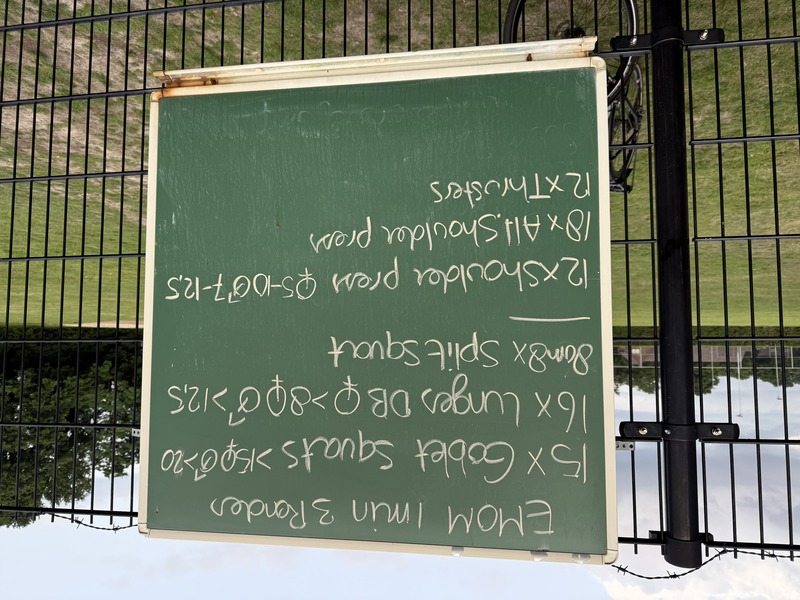 EMOM 1 min 3 Rondes
15x Goblet squats >15♀♂>20
16x Lunges DB ♀>8♀♂>12,5
8x Split squat
12x Shoulder press ♀5-10♂7-12,5
18x Alt. Shoulder press
12xThrusters